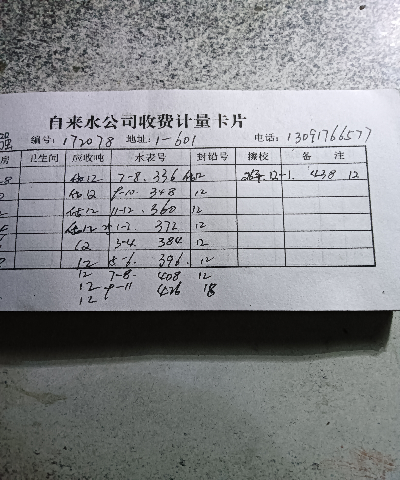 自来水公司收费计量卡片
强 编号: 172078 地址: 1-601 电话: 13091766577
房 卫生间 应收吨 水表号 封铅号 擦校 备 注
8 12 7-8. 336 12 12-1. 438 12
12 9-10. 348 12
12 11-12. 360 12
12 1-2. 372 12
12 3-4. 384 12
12 5-6. 396. 12
12 7-8. 408 12
12 9-11 426 18
12